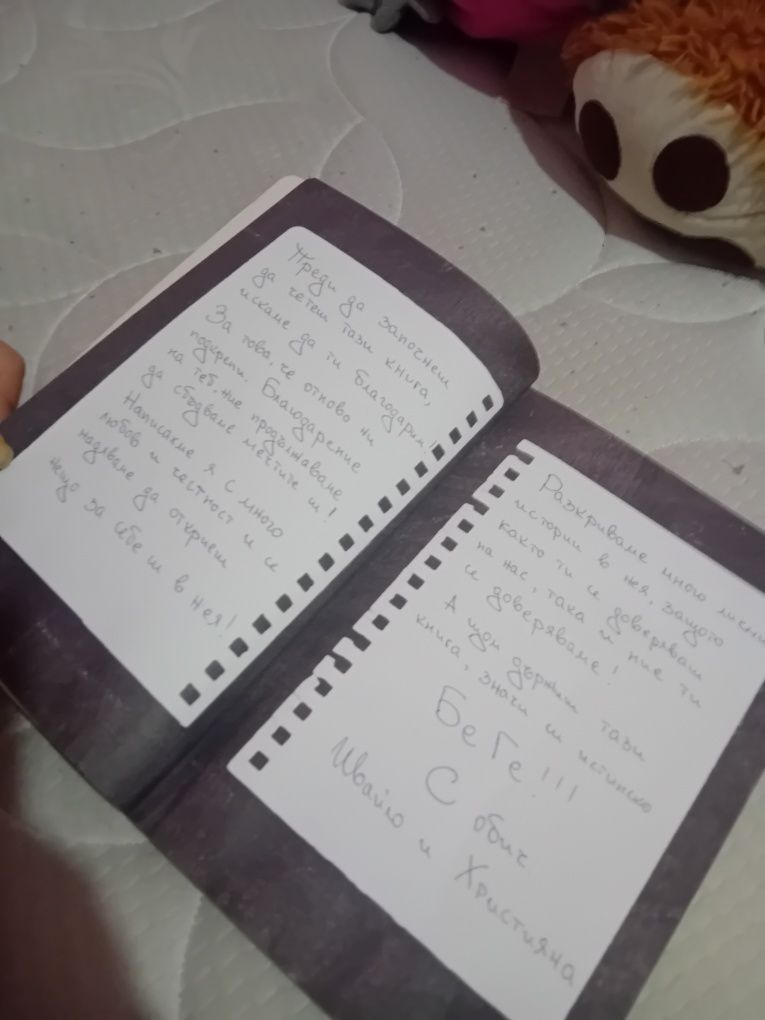 Преди да започнеш
да четеш тази книга,
искаме да ти благодарим!
За това, че отново ни
подкрепи. Благодарение
на теб, ние продължаваме
да сбъдваме мечтите си!
Написахме я с много
любов и честност и се
надяваме да откриеш
нещо за себе си в нея!
Разкриваме много лични
истории в нея, защото
както ти се доверяваш
на нас, така и ние ти
се доверяваме!
А щом държиш тази
книга, значи си истинско
БеГе!!!
С обич
Ивайло и Християна